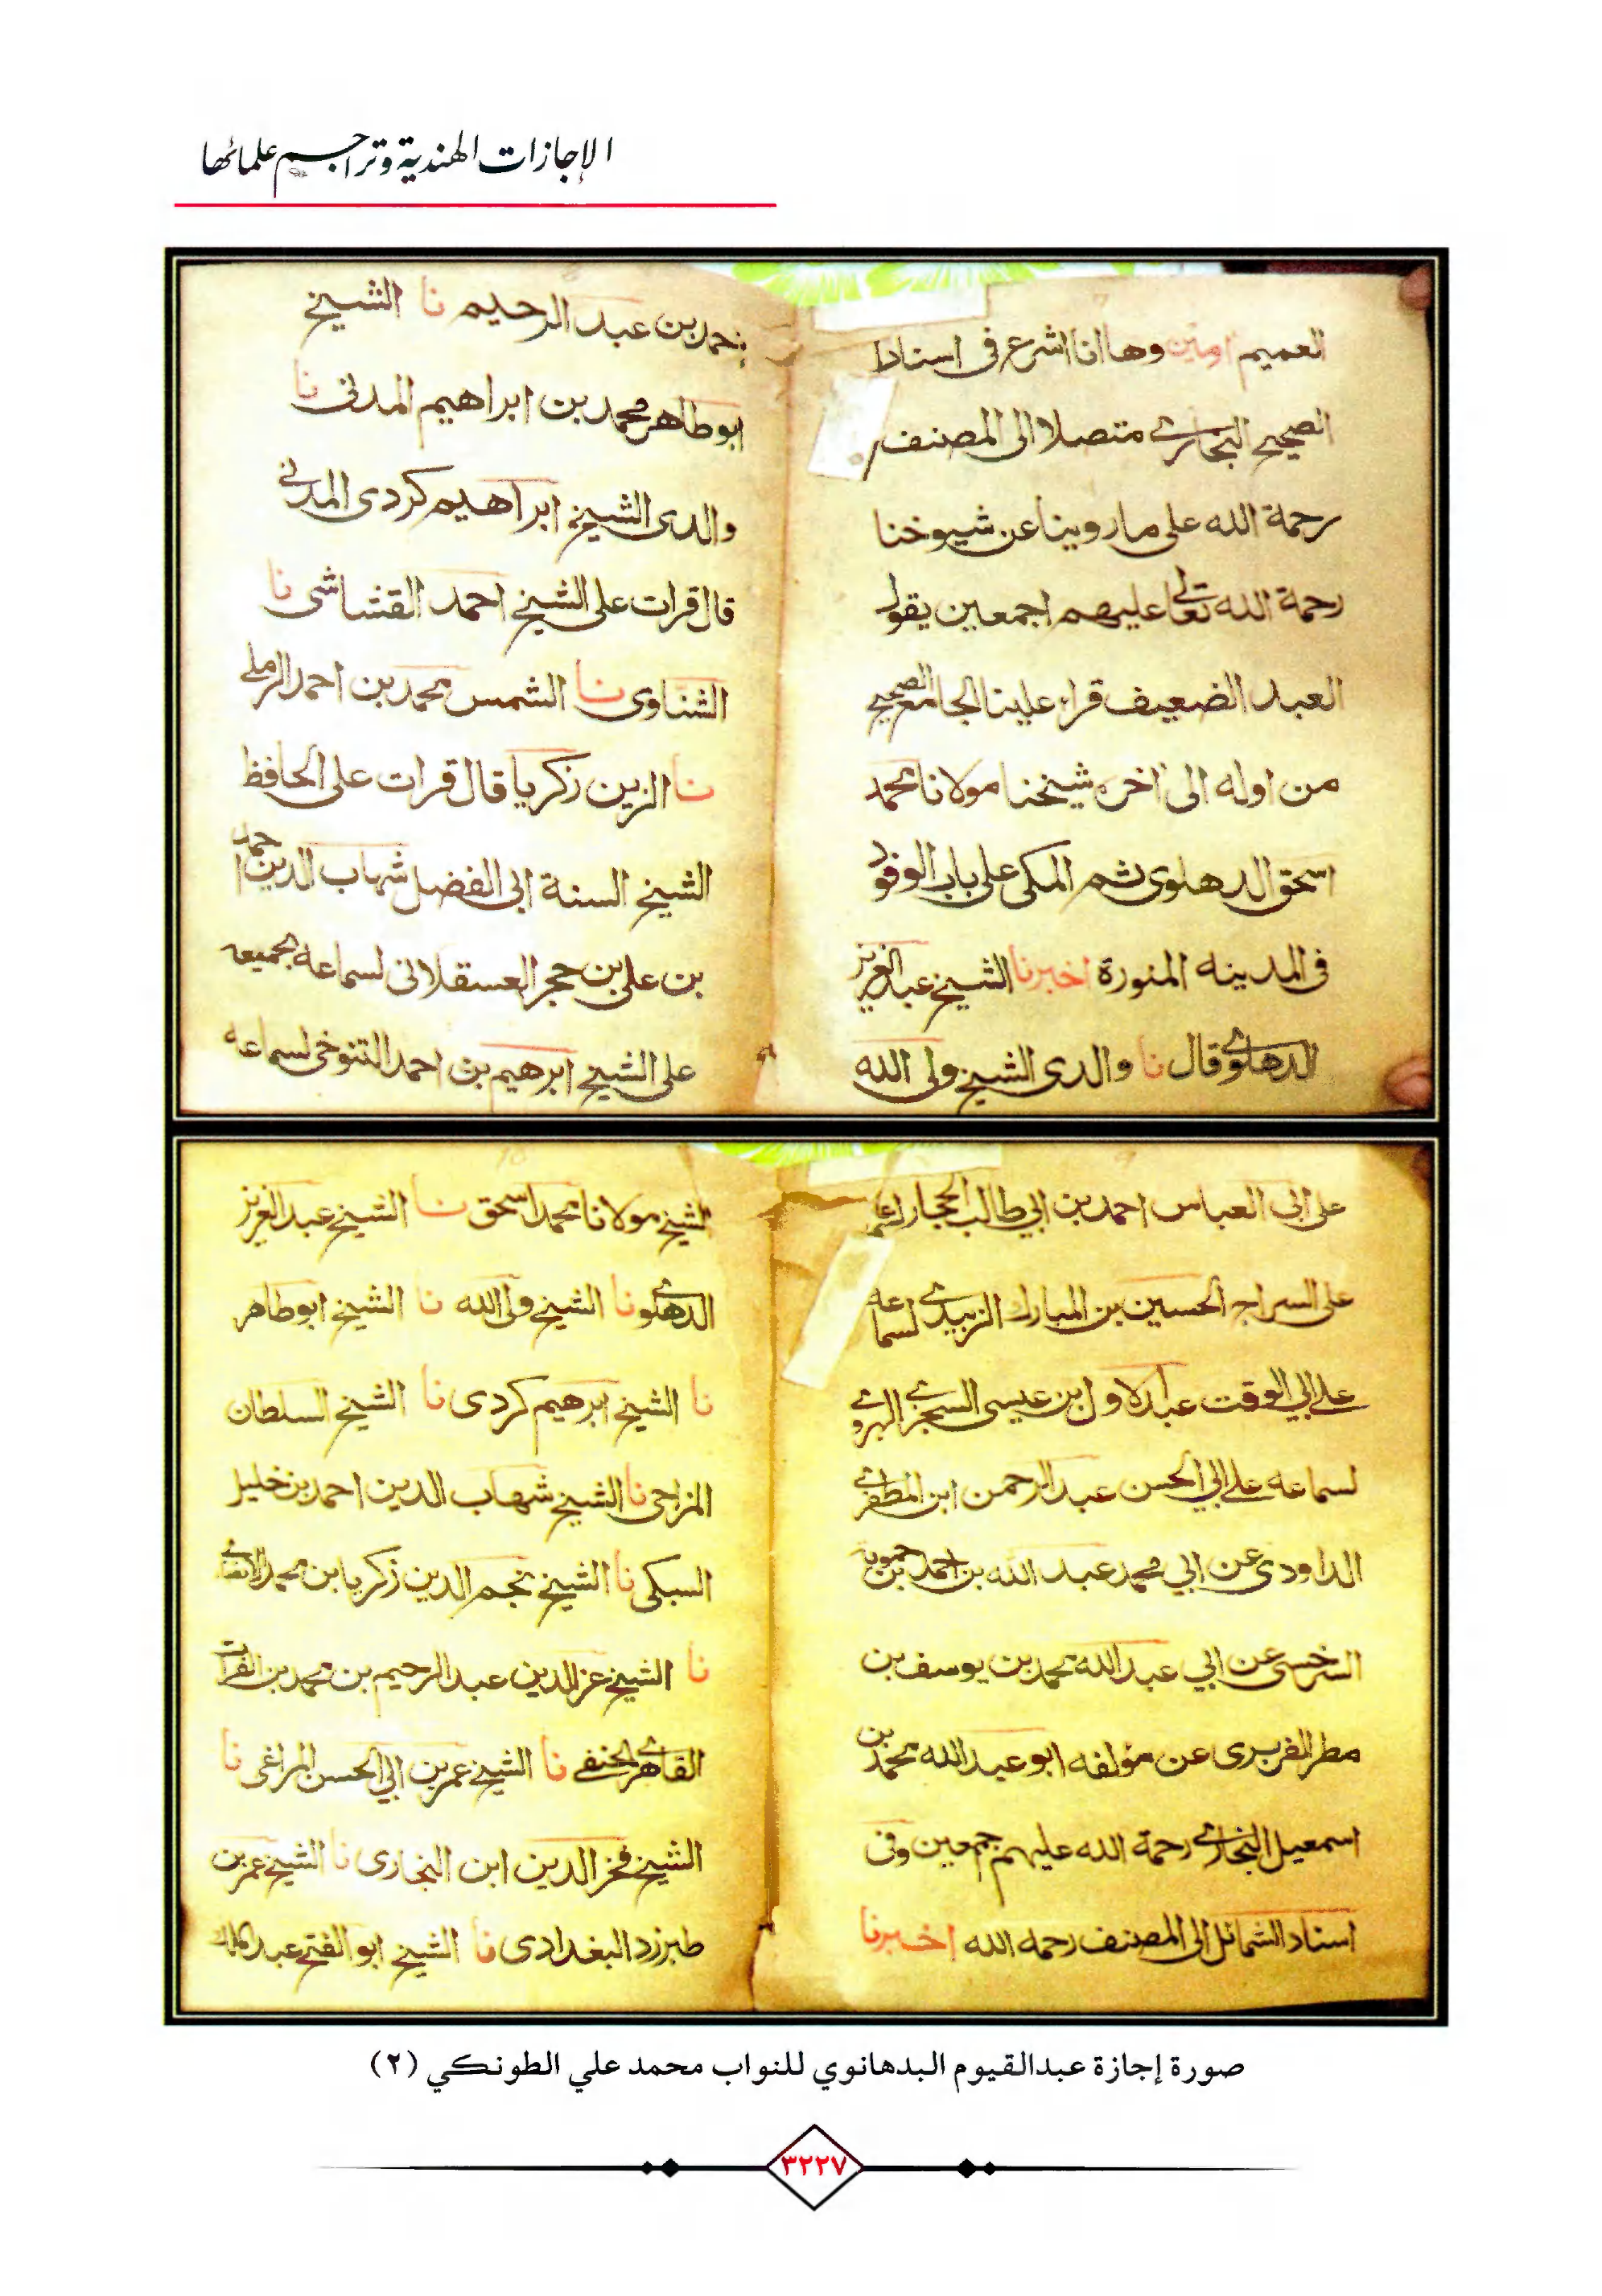 الإجازات الهندية وتراجم علمائها
العميم امين وها انا اشرع فى اسناد
الصحيح البخارى متصلا الى المصنف
رحمة الله على ما روينا عن شيوخنا
رحمة الله تعالى عليهم اجمعين يقول
العبد الضعيف قراء علينا الجامع الصحيح
من اوله الى اخره شيخنا مولانا محمد
اسحق الدهلوى ثم المكى على باب الوفود
فى المدينه المنورة اخبرنا الشيخ عبد العزيز
الدهلوى قال نا والدى الشيخ ولى الله
بن عبد الرحيم نا الشيخ
ابو طاهر محمد بن ابراهيم المدنى نا
والدى الشيخ ابراهيم كردى المدنى
قال قرات على الشيخ احمد القشاشى نا
الشناوى نا الشمس محمد بن احمد الرملى
نا الزين زكريا قال قرات على الحافظ
الشيخ السنة ابى الفضل شهاب الدين احمد
بن على بن حجر العسقلانى لسماعه بجميعه
على الشيخ ابرهيم بن احمد التنوخى لسماعه
على ابى العباس احمد بن ابي طالب الحجار
على السراج الحسين بن المبارك الزبيدى لسماعه
على ابي الوقت عبد الاول بن عيسى السجزى الهروى
لسماعه على ابي الحسن عبد الرحمن ابن المظفر
الداودى عن ابي محمد عبد الله بن احمد بن حمويه
السرخسى عن ابي عبد الله محمد بن يوسف بن
مطر الفربرى عن مؤلفه ابو عبد الله محمد بن
اسمعيل البخارى رحمة الله عليهم جمعين وفى
اسناد الشمائل الى المصنف رحمه الله اخبرنا
الشيخ مولانا محمد اسحق نا الشيخ عبد العزيز
الدهلوى نا الشيخ ولى الله نا الشيخ ابو طاهر
نا الشيخ ابرهيم كردى نا الشيخ السلطان
المزاحى نا الشيخ شهاب الدين احمد بن خليل
السبكى نا الشيخ نجم الدين زكريا بن محمد
نا الشيخ عز الدين عبد الرحيم بن محمد بن الفرات
القاهرى الحنفى نا الشيخ عمر بن ابي الحسن المراغى نا
الشيخ فخر الدين ابن البخارى نا الشيخ عمر بن
طبرزد البغدادى نا الشيخ ابو الفتح عبد الملك
صورة إجازة عبدالقيوم البدهانوي للنواب محمد علي الطونكي (٢)
٣٢٢٧